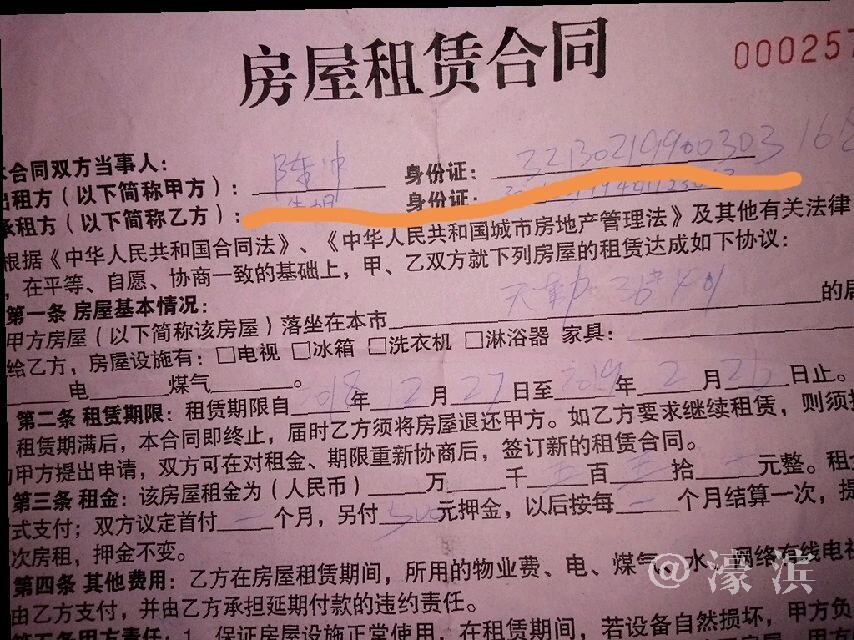 房屋租赁合同
000257
本合同双方当事人：
出租方（以下简称甲方）：陈冲 身份证：32130219900303168
承租方（以下简称乙方）： 身份证：
根据《中华人民共和国合同法》、《中华人民共和国城市房地产管理法》及其他有关法律
，在平等、自愿、协商一致的基础上，甲、乙双方就下列房屋的租赁达成如下协议：
第一条 房屋基本情况：
甲方房屋（以下简称该房屋）落坐在本市 的居
给乙方，房屋设施有：□电视 □冰箱 □洗衣机 □淋浴器 家具：
电 煤气 。
第二条 租赁期限：租赁期限自2018年12月27日至2019年2月26日止。
租赁期满后，本合同即终止，届时乙方须将房屋退还甲方。如乙方要求继续租赁，则须提
向甲方提出申请，双方可在对租金、期限重新协商后，签订新的租赁合同。
第三条 租金：该房屋租金为（人民币） 万 千 五 百 五 拾 元整。租金
式支付；双方议定首付一个月，另付500元押金，以后按每一个月结算一次，提
次房租，押金不变。
第四条 其他费用：乙方在房屋租赁期间，所用的物业费、电、煤气、水、网络有线电视
由乙方支付，并由乙方承担延期付款的违约责任。
第五条 甲方责任：1、保证房屋设施正常使用，在租赁期间，若设备自然损坏，甲方负
@濠滨